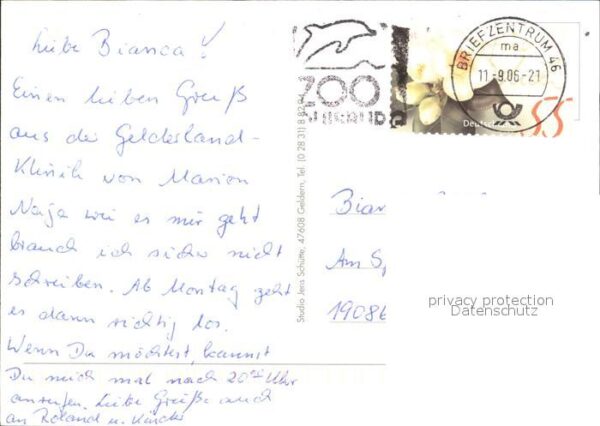 Liebe Bianca!
Einen lieben Gruß
aus der Gelderland-
Klinik von Marion
Naja wie es mir geht
brauch ich sicher nicht
schreiben. Ab Montag geht
es dann richtig los.
Wenn Du möchtest, kannst
Du mich mal nach 20 Uhr
anrufen. Liebe Grüße auch
an Roland u. Kinder
Studio Jens Schütte, 47608 Geldern, Tel. (0 28 31) 8 82
ZOO
BRIEFZENTRUM 46
ma
11-9.06-21
Deutsc
55
Bian
Am S
19086
privacy protection
Datenschutz